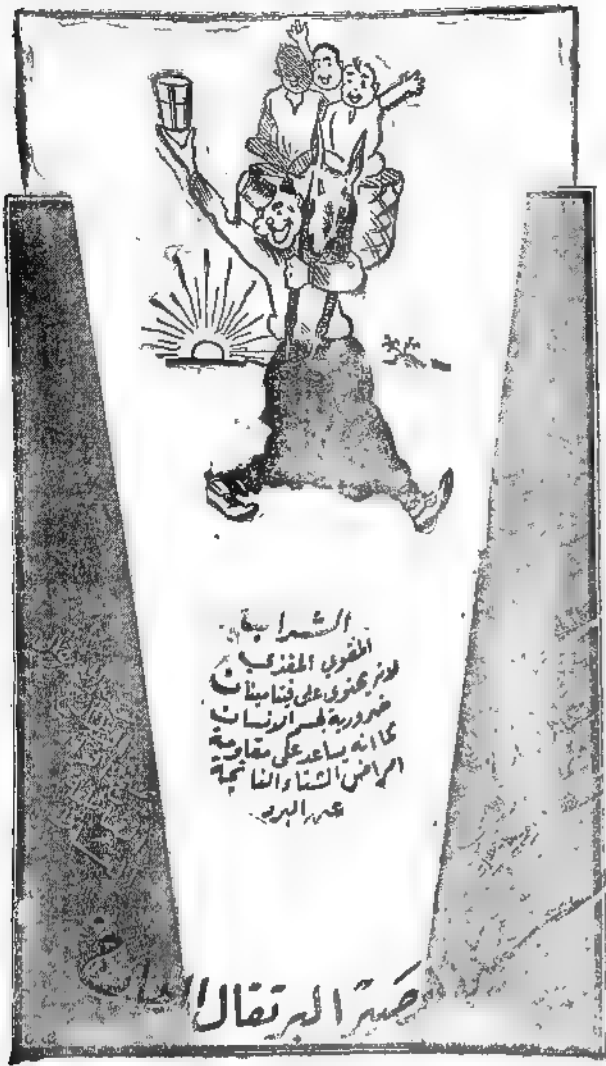 الشراب
المقوي المغذي
لانه يحتوى على فيتامينات
ضرورية لجسم الانسان
كما انه يساعد على مقاومة
امراض الشتاء الناتجة
عن البرد
عصير البرتقال